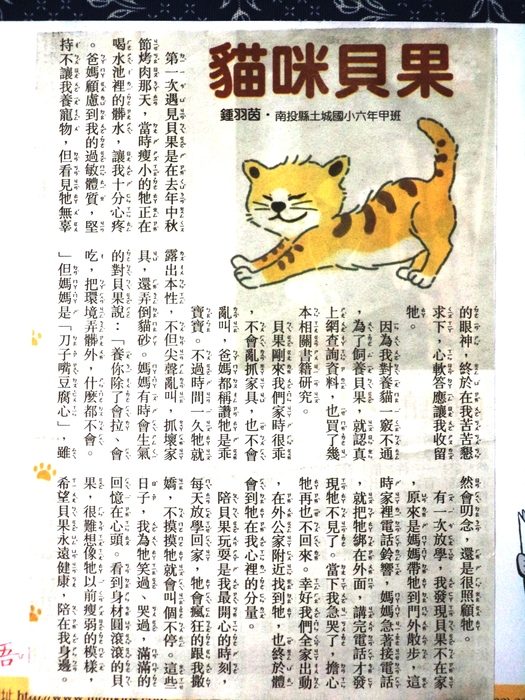 貓咪貝果
鍾羽茵・南投縣土城國小六年甲班
第一次遇見貝果是在去年中秋
節烤肉那天，當時瘦小的牠正在
喝水池裡的髒水，讓我十分心疼
。爸媽顧慮到我的過敏體質，堅
持不讓我養寵物，但看見牠無辜
的眼神，終於在我苦苦懇
求下，心軟答應讓我收留
牠。
因為我對養貓一竅不通
，為了飼養貝果，就認真
上網查詢資料，也買了幾
本相關書籍研究。
貝果剛來我們家時很乖
，不會亂抓家具，也不會
亂叫，爸媽都稱讚牠是乖
寶寶。不過時間一久牠就
露出本性，不但尖聲亂叫，抓壞家
具，還弄倒貓砂。媽媽有時會生氣
的對貝果說：「養你除了會拉、會
吃，把環境弄髒外，什麼都不會。
」但媽媽是「刀子嘴豆腐心」，雖
然會叨念，還是很照顧牠。
有一次放學，我發現貝果不在家
，原來是媽媽帶牠到門外散步，這
時家裡電話鈴響，媽媽急著接電話
，就把牠綁在外面，講完電話才發
現牠不見了。當下我急哭了，擔心
牠再也不回來。幸好我們全家出動
，在外公家附近找到牠，也終於體
會到牠在我心裡的分量。
陪貝果玩耍是我最開心的時刻，
每天放學回家，牠會瘋狂的跟我撒
嬌，不摸摸牠就會叫個不停。這些
日子，我為牠笑過、哭過，滿滿的
回憶在心頭。看到身材圓滾滾的貝
果，很難想像牠以前瘦弱的模樣，
希望貝果永遠健康，陪在我身邊。